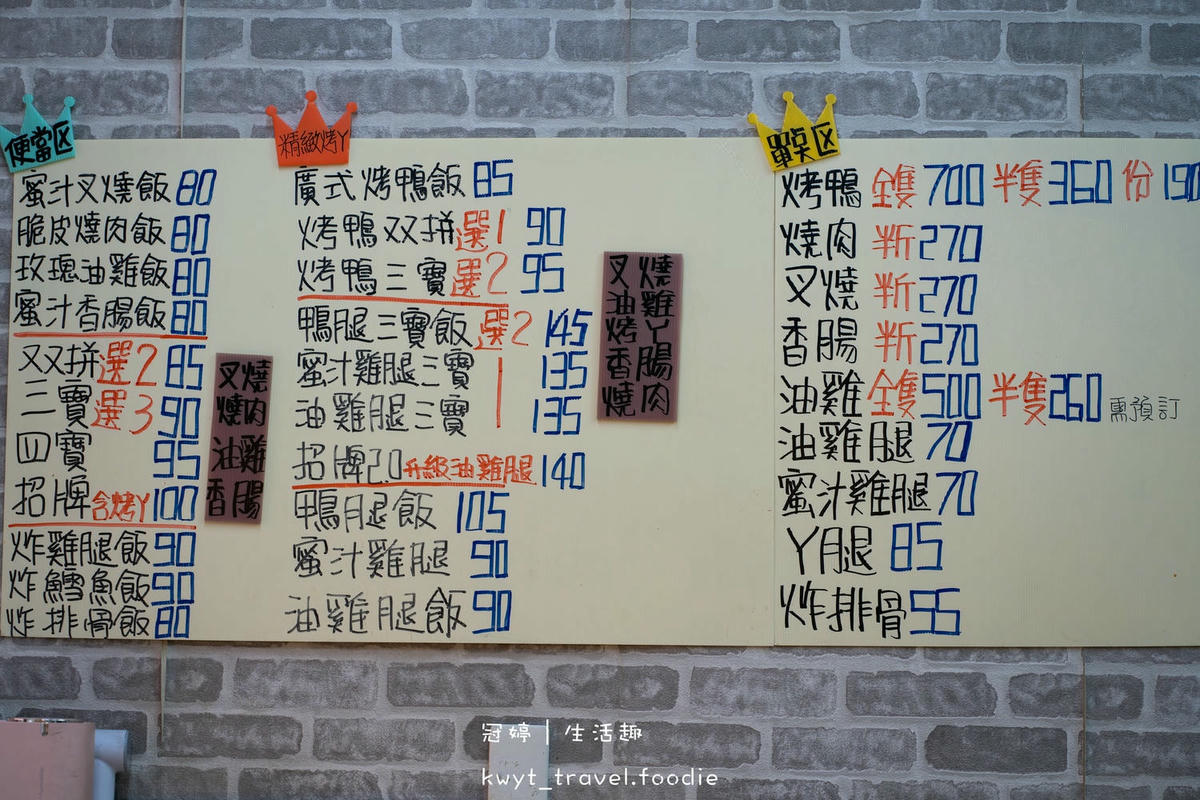 便當区
蜜汁叉燒飯 80
脆皮燒肉飯 80
玫瑰油雞飯 80
蜜汁香腸飯 80
双拼選2 85
三寶選3 90
四寶 95
招牌含烤丫 100
炸雞腿飯 90
炸鱈魚飯 90
炸排骨飯 80
叉燒
燒肉
油雞
香腸
精緻烤丫
廣式烤鴨飯 85
烤鴨双拼選1 90
烤鴨三寶選2 95
鴨腿三寶飯選2 145
蜜汁雞腿三寶 1 135
油雞腿三寶 1 135
招牌2.0升級油雞腿 140
鴨腿飯 105
蜜汁雞腿 90
油雞腿飯 90
叉燒
油雞
烤丫
香腸
燒肉
單点区
烤鴨 全隻700 半隻360 份190
燒肉 半斤270
叉燒 半斤270
香腸 半斤270
油雞 全隻500 半隻260 需預訂
油雞腿 70
蜜汁雞腿 70
丫腿 85
炸排骨 55
冠婷｜生活趣
kwyt_travel.foodie